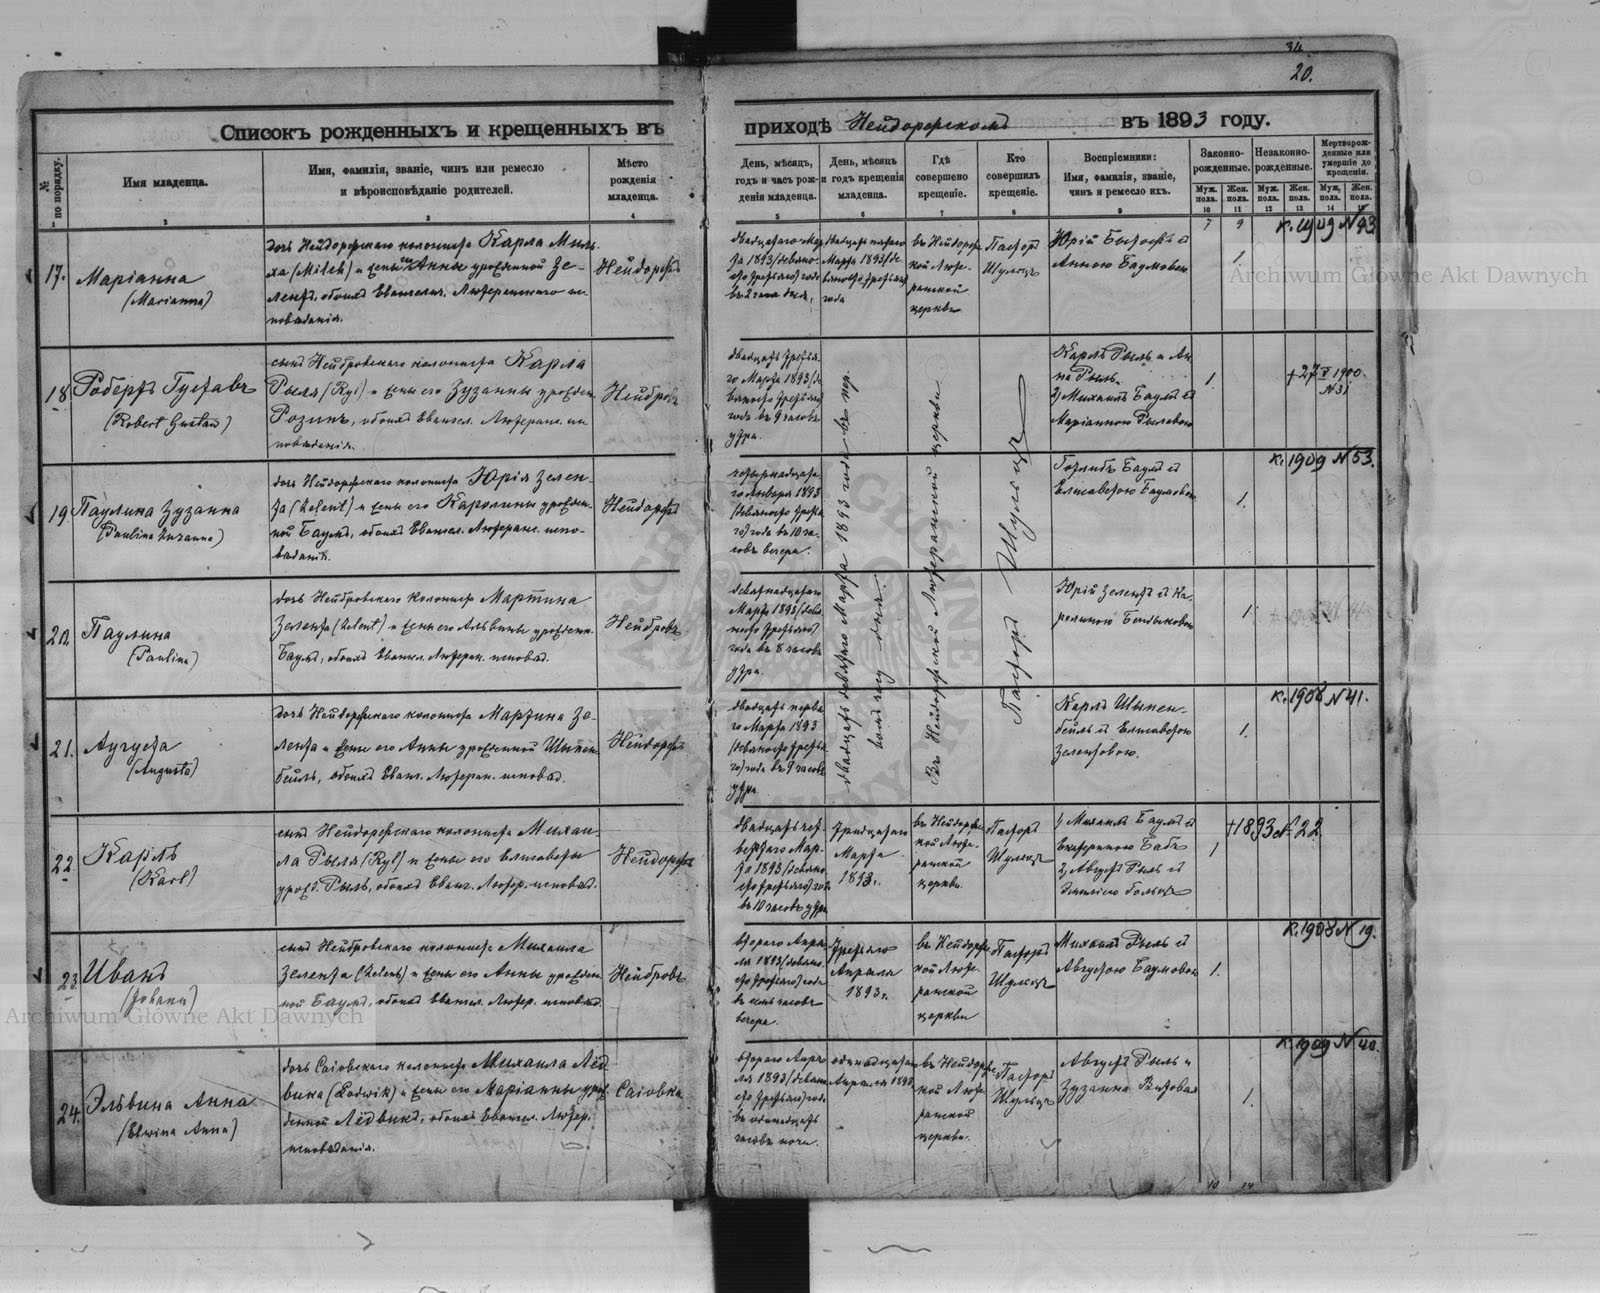 34
20.
Списокъ рожденныхъ и крещенныхъ въ приходѣ Нейдорфскомъ въ 1893 году.
№ по порядку.
Имя младенца.
Имя, фамилія, званіе, чинъ или ремесло
и вѣроисповѣданіе родителей.
Мѣсто
рожденія
младенца.
День, мѣсяцъ,
годъ и часъ рож-
денія младенца.
День, мѣсяцъ
и годъ крещенія
младенца.
Гдѣ
совершено
крещеніе.
Кто
совершилъ
крещеніе.
Воспріемники:
Имя, фамилія, званіе,
чинъ и ремесло ихъ.
Законно-
рожденные.
Незаконно-
рожденные.
Мертворож-
денные или
умершіе до
крещенія.
Муж. пола.
Жен. пола.
Муж. пола.
Жен. пола.
Муж. пола.
Жен. пола.
1 2 3 4 5 6 7 8 9 10 11 12 13 14
7 9
17.
Маріанна
(Marianna)
дочь Нейдорфскаго колониста Карла Миль-
ха (Milch) и жены его Анны урожденной Зе-
лентъ, обоихъ Евангелич. Лютеранскаго ис-
повѣданія.
Нейдорфъ
двадцатаго Мар-
та 1893 (девяно-
сто третьяго) года
въ 2 часа дня.
двадцать пятаго
Марта 1893 (де-
вяносто третьяго)
года
въ Нейдорфс-
кой Люте-
ранской
церкви
Пасторъ
Шульцъ
Юрій
Анною Баумовою
1.
к. 1909 N 43
18
Робертъ Густавъ
(Robert Gustav)
сынъ Нейбровскаго колониста Карла
Рыля (Ryl) и жены его Зузанны урожден.
Розинъ, обоихъ Евангел. Лютеранс. ис-
повѣданія.
Нейбровъ
двадцать третья-
го Марта 1893 (де-
вяносто третьяго)
года въ 9 часовъ
утра.
Карлъ Рыль и Ан-
на Рыль.
2) Михаилъ Баумъ и
Маріанною Рылевою
1.
+ 27 V 1900.
N 31
19.
Паулина Зузанна
(Paulina Zuzanna)
дочь Нейдорфскаго колониста Юрія Зелен-
та (Zelent) и жены его Каролины урожден-
ной Баумъ, обоихъ Евангел. Лютеранс. испо-
вѣданія.
Нейдорфъ
четырнадцата-
го Января 1893
(девяносто третья-
го) года въ 10 ча-
совъ вечера.
Готлибъ Баумъ и
Елисаветою Баумовою
1.
к. 1909 N 53.
20.
Паулина
(Paulina)
дочь Нейбровскаго колониста Мартина
Зелента (Zelent) и жены его Альвины урожденн.
Баумъ, обоихъ Евангел. Лютеран. исповѣд.
Нейбровъ
девятнадцатаго
Марта 1893 (девя-
носто третьяго)
года въ 8 часовъ
утра.
двадцать девятаго Марта 1893 года въ
Въ Нейдорфской Лютеранской церкви
Пасторъ Шульцъ
Юрій Зелентъ и Ка-
ролиною
1.
21.
Аугуста
(Augusta)
дочь Нейдорфскаго колониста Мартина Зе-
лента и жены его Анны урожденной Шипен-
бейль, обоихъ Еванг. Лютеран. исповѣд.
Нейдорфъ
двадцать перва-
го Марта 1893
(девяносто третья-
го) года въ 9 часовъ
утра
Карлъ Шыпен-
бейль и Елисаветою
Зелентовою.
1.
к. 1908 N 41.
22
Карлъ
(Karl)
сынъ Нейдорфскаго колониста Михаи-
ла Рыля (Ryl) и жены его Елисаветы
урожд. Рыль, обоихъ Еванг. Лютер. исповѣд.
Нейдорфъ
двадцать чет-
вертаго Мар-
та 1893 (девяно-
сто третьяго) года
въ 10 часовъ утра
Тридцатаго
Марта
1893 г.
въ Нейдорфс-
кой Люте-
ранской
церкви
Пасторъ
Шульцъ
1) Михаилъ Баумъ и
Екатериною Бабъ
2) Августъ Рыль и
Эмилією
1
+ 1893 N 22
23
Иванъ
(Johann)
сынъ Нейбровскаго колониста Михаила
Зелента (Zelent) и жены его Анны урожден-
ной Баумъ, обоихъ Евангел. Лютер. исповѣд.
Нейбровъ
втораго Апрѣ-
ля 1893 (девяно-
сто третьяго) года
въ семь часовъ
вечера.
Третьяго
Апрѣля
1893 г.
въ Нейдорфс-
кой Люте-
ранской
церкви
Пасторъ
Шульцъ
Михаилъ Рыль и
Августою Баумовою
1.
к. 1908 N 19.
24.
Эльвина Анна
(Elwina Anna)
дочь Саіовскаго колониста Михаила Лед-
вика (Ledwik) и жены его Маріанны урож-
денной Ледвикъ, обоихъ Евангел. Лютер.
исповѣданія.
Саіовка
втораго Апрѣ-
ля 1893 (девяно-
сто третьяго) года
въ одинадцать
часовъ ночи.
одинадцатаго
Апрѣля 1893
въ Нейдорфс-
кой Люте-
ранской
церкви.
Пасторъ
Шульцъ
Августъ Рыль и
Зузанна
1.
к. 1909 N 40.
10 14
Archiwum Główne Akt Dawnych
Archiwum Główne Akt Dawnych